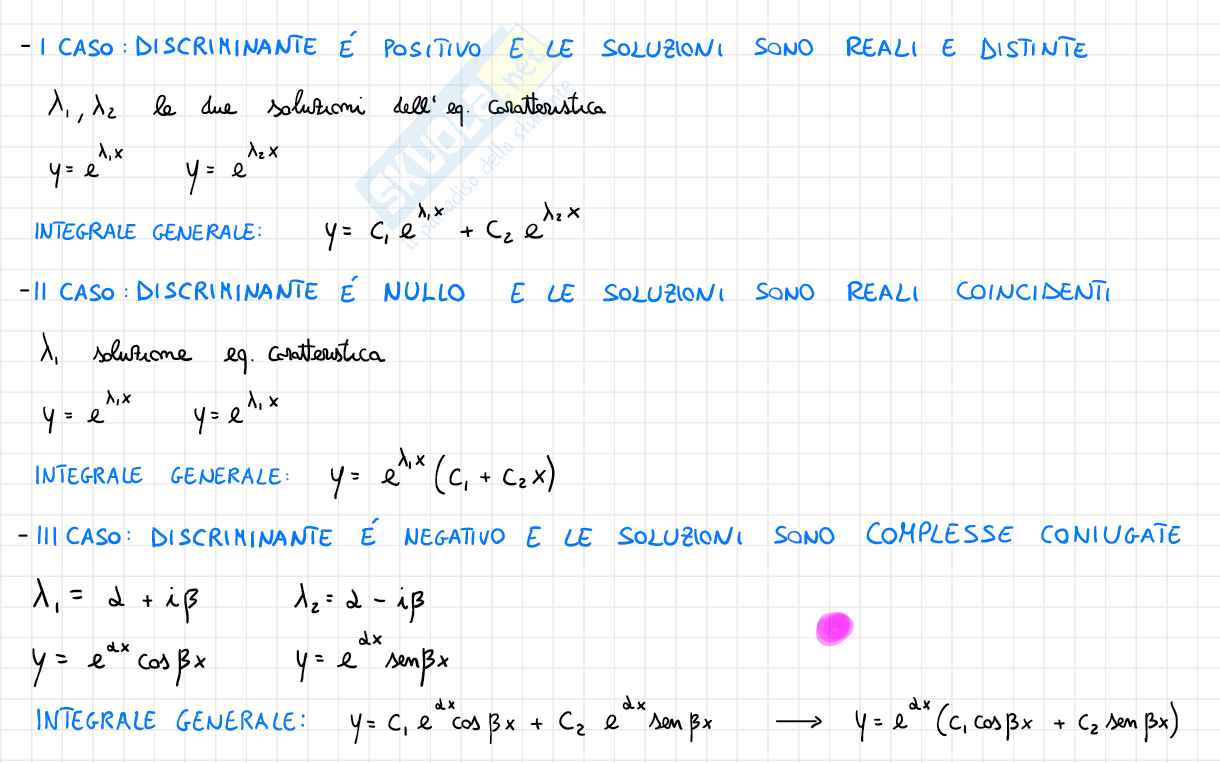 - I CASO: DISCRIMINANTE É POSITIVO E LE SOLUZIONI SONO REALI E DISTINTE
λ₁, λ₂ le due soluzioni dell' eq. caratteristica
y = e^{λ₁x} y = e^{λ₂x}
INTEGRALE GENERALE: y = C₁ e^{λ₁x} + C₂ e^{λ₂x}
- II CASO: DISCRIMINANTE É NULLO E LE SOLUZIONI SONO REALI COINCIDENTI
λ₁ soluzione eq. caratteristica
y = e^{λ₁x} y = e^{λ₁x}
INTEGRALE GENERALE: y = e^{λ₁x} (C₁ + C₂x)
- III CASO: DISCRIMINANTE É NEGATIVO E LE SOLUZIONI SONO COMPLESSE CONIUGATE
λ₁ = α + iβ λ₂ = α - iβ
y = e^{αx} cos βx y = e^{αx} sen βx
INTEGRALE GENERALE: y = C₁ e^{αx} cos βx + C₂ e^{αx} sen βx → y = e^{αx} (C₁ cos βx + C₂ sen βx)
SKUOLA.net
il paradiso dello studente